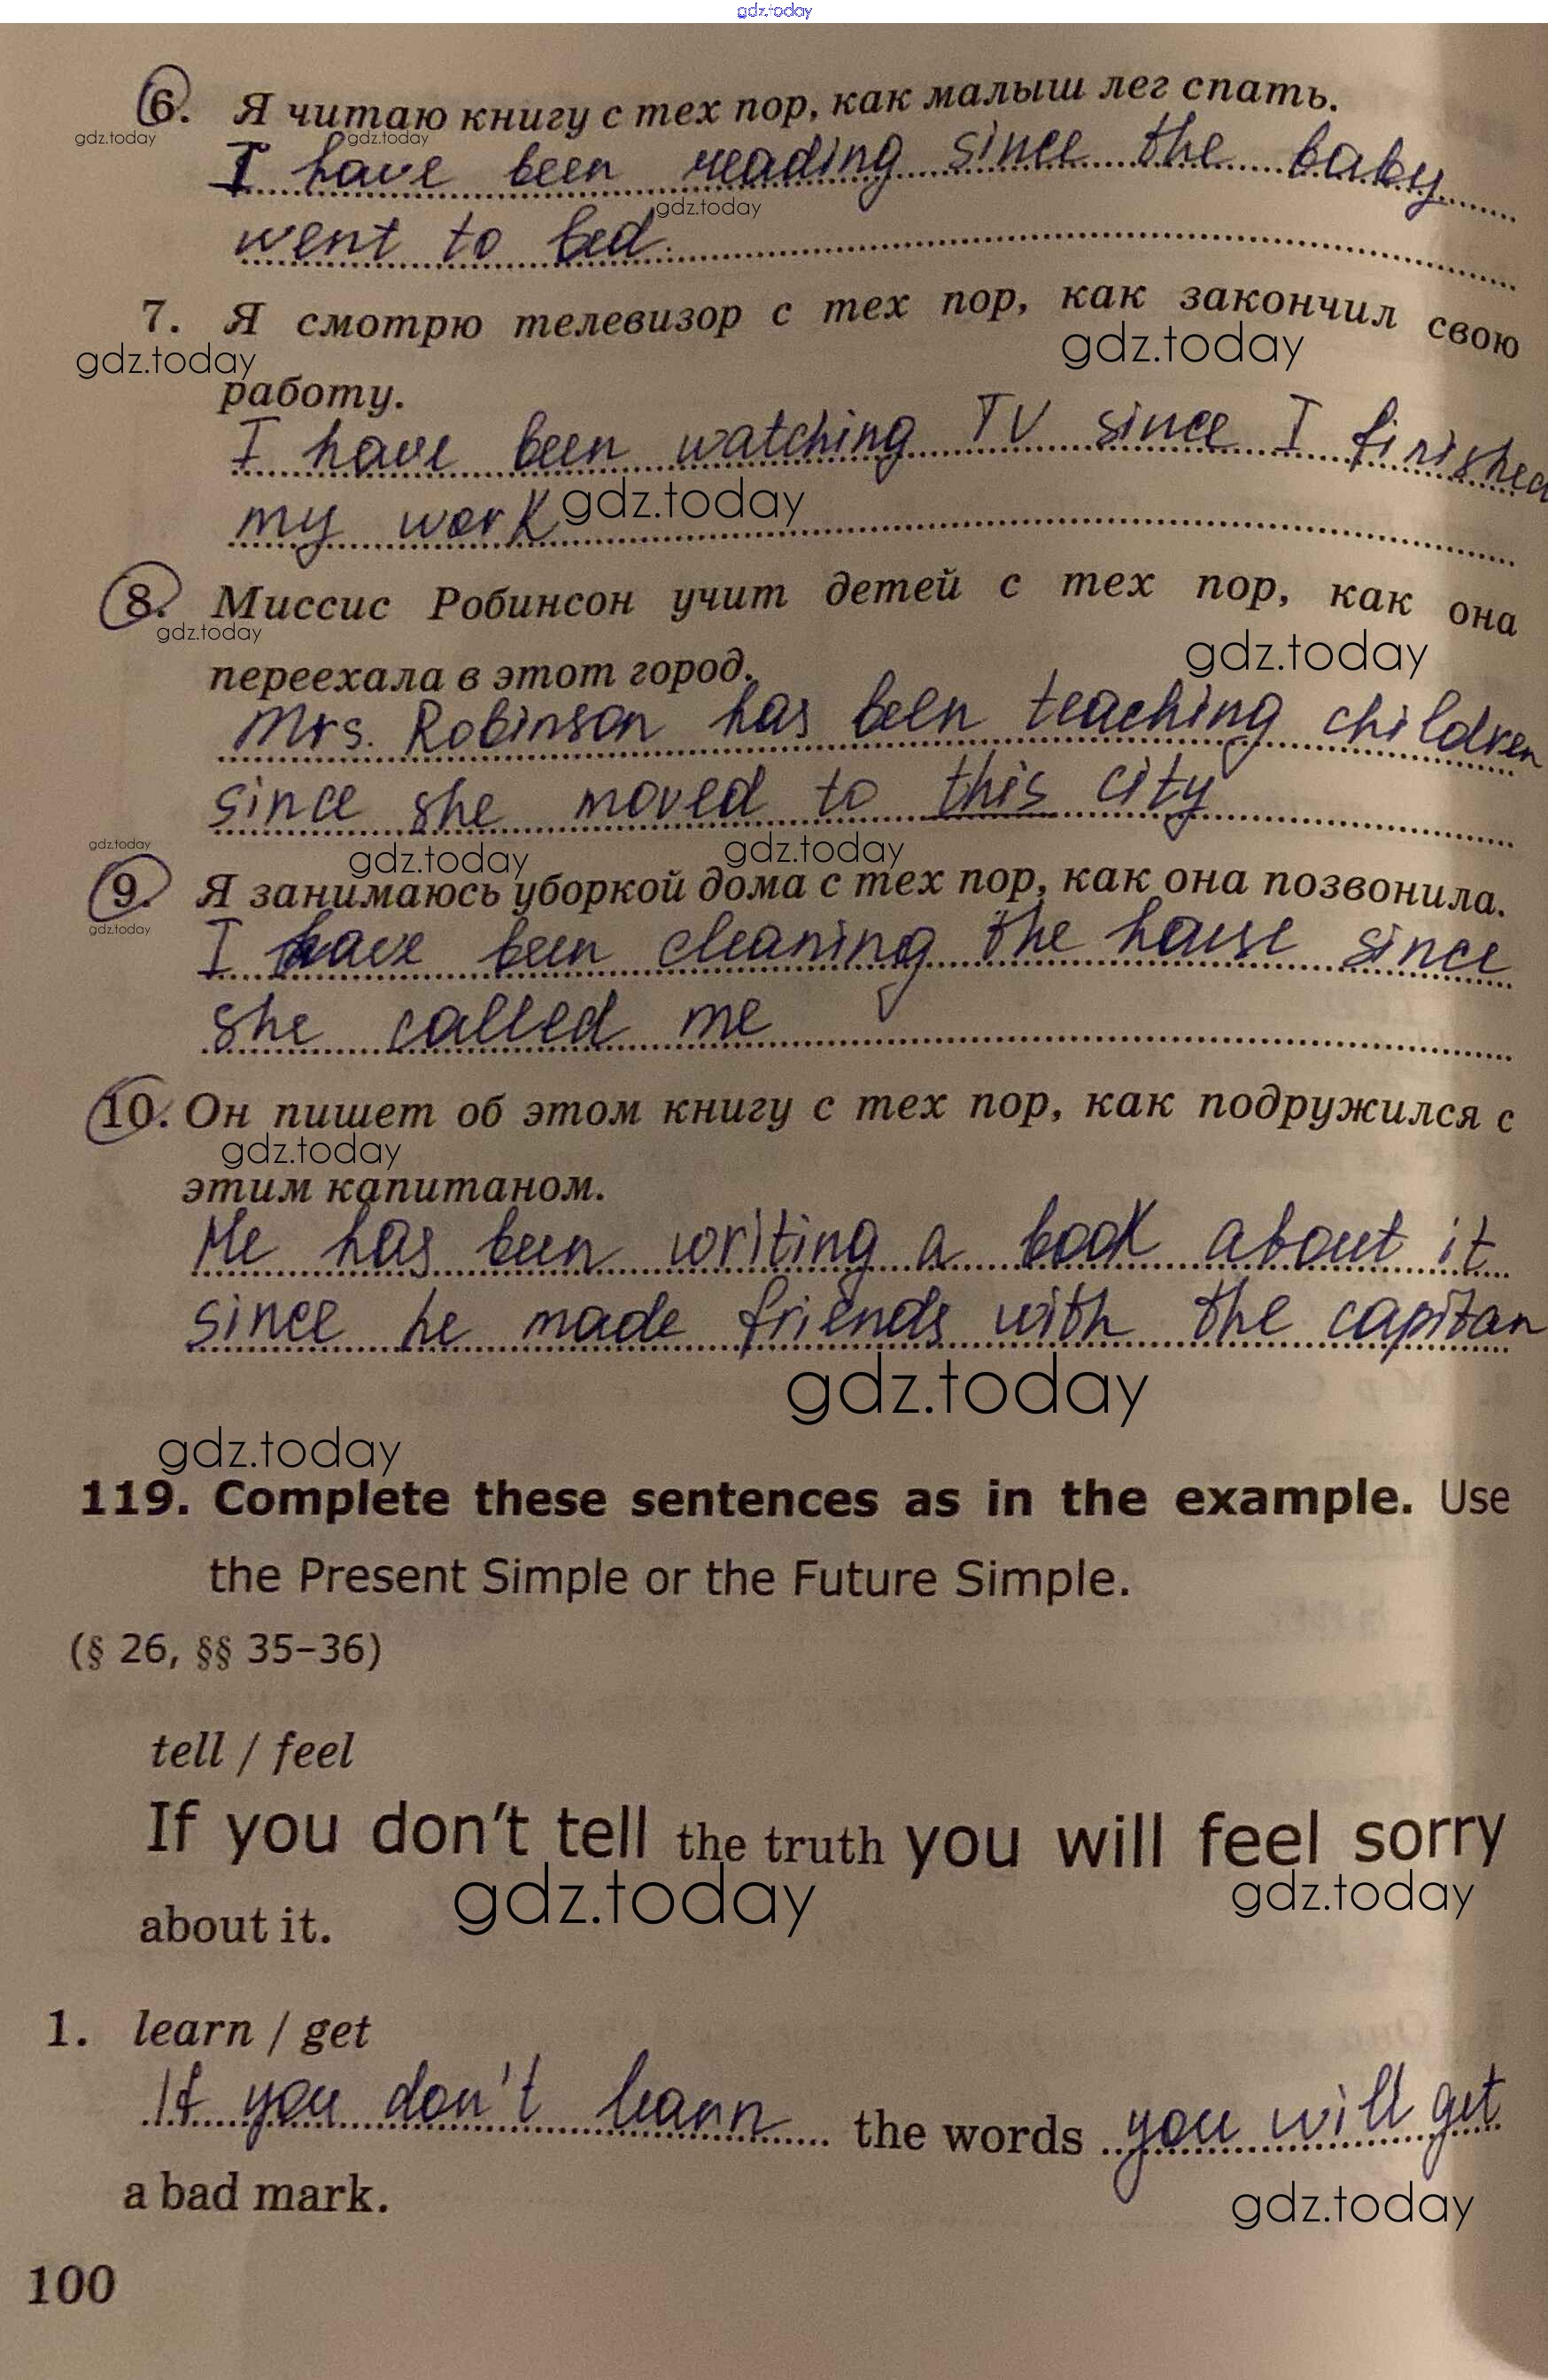 gdz.today
6. Я читаю книгу с тех пор, как малыш лег спать.
gdz.today gdz.today
I have been reading since the baby
gdz.today
went to bed.
7. Я смотрю телевизор с тех пор, как закончил свою
gdz.today gdz.today
работу.
I have been watching TV since I finished
my work gdz.today
8. Миссис Робинсон учит детей с тех пор, как она
gdz.today gdz.today
переехала в этот город.
Mrs. Robinson has been teaching children
since she moved to this city
gdz.today gdz.today gdz.today
9. Я занимаюсь уборкой дома с тех пор, как она позвонила.
gdz.today
I have been cleaning the house since
she called me
10. Он пишет об этом книгу с тех пор, как подружился с
gdz.today
этим капитаном.
He has been writing a book about it
since he made friends with the capitan
gdz.today
gdz.today
119. Complete these sentences as in the example. Use
the Present Simple or the Future Simple.
(§ 26, §§ 35–36)
tell / feel
If you don't tell the truth you will feel sorry
gdz.today gdz.today
about it.
1. learn / get
If you don't learn the words you will get
a bad mark.
gdz.today
100